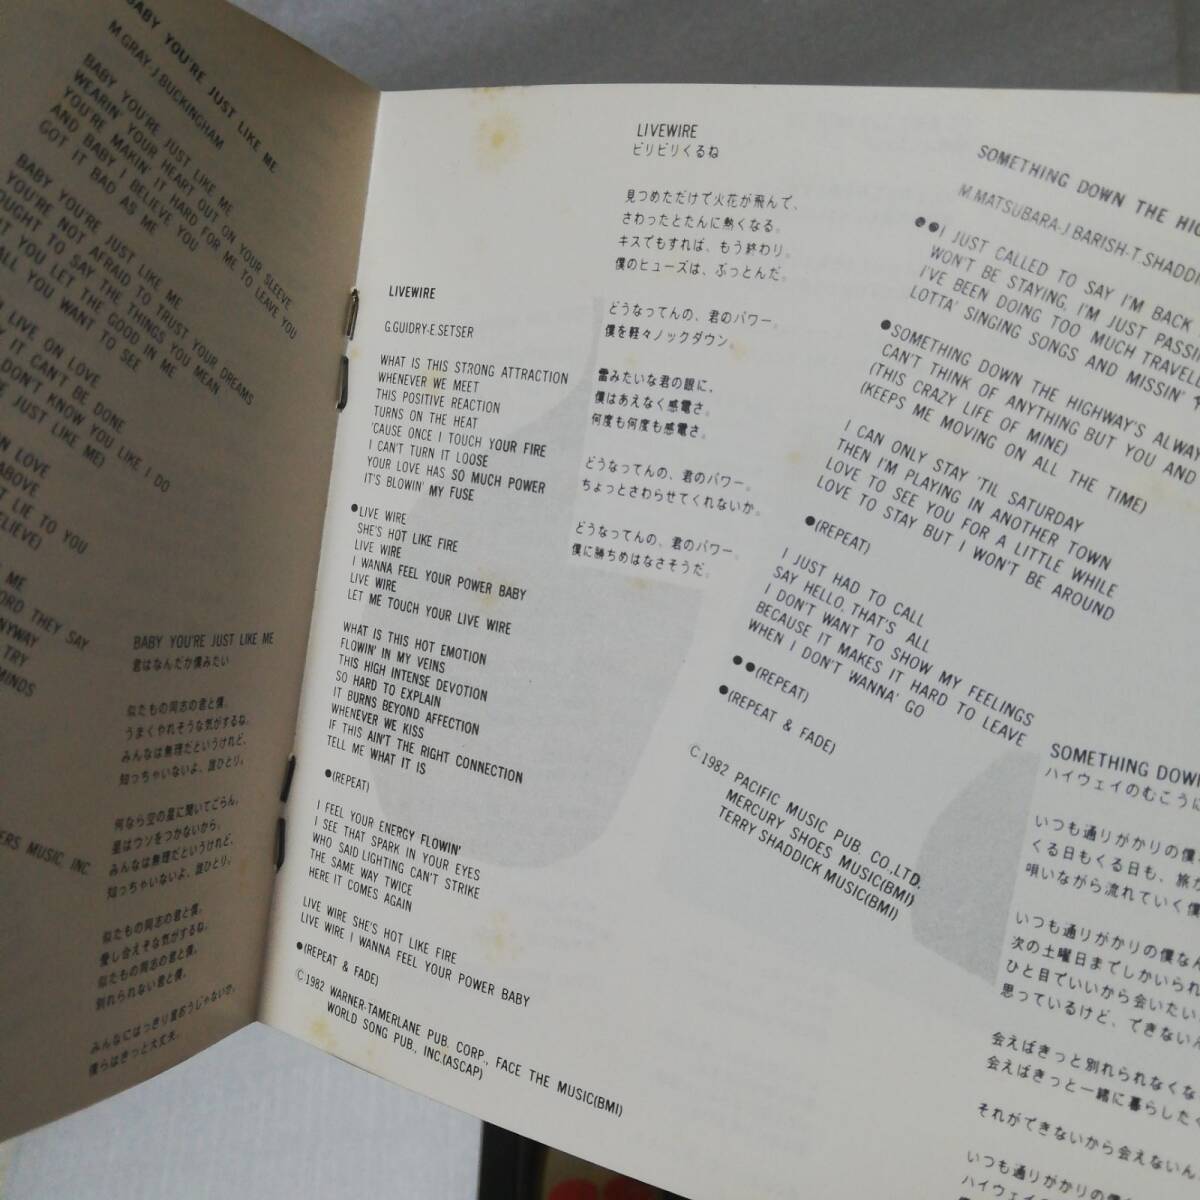 BABY YOU'RE JUST LIKE ME
M.GRAY-J.BUCKINGHAM
BABY YOU'RE JUST LIKE ME
WEARIN' YOUR HEART OUT ON YOUR SLEEVE
YOU'RE MAKIN' IT HARD FOR ME TO LEAVE YOU
AND BABY I BELIEVE YOU
GOT IT BAD AS ME
BABY YOU'RE JUST LIKE ME
YOU'RE NOT AFRAID TO TRUST YOUR DREAMS
OUGHT TO SAY THE THINGS YOU MEAN
YOU LET THE GOOD IN ME
ALL YOU WANT TO SEE
LIVE ON LOVE
IT CAN'T BE DONE
DON'T KNOW YOU LIKE I DO
JUST LIKE ME)
LOVE
ABOVE
LIE TO YOU
ME
THEY SAY
TRY
MINDS
MUSIC INC
BABY YOU'RE JUST LIKE ME
君はなんだか僕みたい
似たもの同志の君と僕。
うまくやれそうな気がするね。
みんなは無理だというけれど、
知っちゃいないよ、誰ひとり。
何なら空の星に聞いてごらん。
星はウソをつかないから。
みんなは無理だというけれど、
知っちゃいないよ、誰ひとり。
似たもの同志の君と僕。
愛し合えそな気がするね。
似たもの同志の君と僕。
別れられない君と僕。
みんなにはっきり言おうじゃないか。
僕らはきっと大丈夫。
LIVEWIRE
G.GUIDRY-E.SETSER
WHAT IS THIS STRONG ATTRACTION
WHENEVER WE MEET
THIS POSITIVE REACTION
TURNS ON THE HEAT
'CAUSE ONCE I TOUCH YOUR FIRE
I CAN'T TURN IT LOOSE
YOUR LOVE HAS SO MUCH POWER
IT'S BLOWIN' MY FUSE
●LIVE WIRE
SHE'S HOT LIKE FIRE
LIVE WIRE
I WANNA FEEL YOUR POWER BABY
LIVE WIRE
LET ME TOUCH YOUR LIVE WIRE
WHAT IS THIS HOT EMOTION
FLOWIN' IN MY VEINS
THIS HIGH INTENSE DEVOTION
SO HARD TO EXPLAIN
IT BURNS BEYOND AFFECTION
WHENEVER WE KISS
IF THIS AIN'T THE RIGHT CONNECTION
TELL ME WHAT IT IS
●(REPEAT)
I FEEL YOUR ENERGY FLOWIN'
I SEE THAT SPARK IN YOUR EYES
WHO SAID LIGHTING CAN'T STRIKE
THE SAME WAY TWICE
HERE IT COMES AGAIN
LIVE WIRE SHE'S HOT LIKE FIRE
LIVE WIRE I WANNA FEEL YOUR POWER BABY
●(REPEAT & FADE)
©1982 WARNER-TAMERLANE PUB. CORP., FACE THE MUSIC(BMI)
WORLD SONG PUB., INC.(ASCAP)
LIVEWIRE
ビリビリくるね
見つめただけで火花が飛んで、
さわったとたんに熱くなる。
キスでもすれば、もう終わり。
僕のヒューズは、ぶっとんだ。
どうなってんの、君のパワー。
僕を軽々ノックダウン。
雷みたいな君の眼に、
僕はあえなく感電さ。
何度も何度も感電さ。
どうなってんの、君のパワー。
ちょっとさわらせてくれないか。
どうなってんの、君のパワー。
僕に勝ちめはなさそうだ。
SOMETHING DOWN THE HIG
M.MATSUBARA-J.BARISH-T.SHADDI
●●I JUST CALLED TO SAY I'M BACK
WON'T BE STAYING, I'M JUST PASSI
I'VE BEEN DOING TOO MUCH TRAVEL
LOTTA' SINGING SONGS AND MISSIN' Y
●SOMETHING DOWN THE HIGHWAY'S ALWAY
CAN'T THINK OF ANYTHING BUT YOU AND
(THIS CRAZY LIFE OF MINE)
(KEEPS ME MOVING ON ALL THE TIME)
I CAN ONLY STAY 'TIL SATURDAY
THEN I'M PLAYING IN ANOTHER TOWN
LOVE TO SEE YOU FOR A LITTLE WHILE
LOVE TO STAY BUT I WON'T BE AROUND
●(REPEAT)
I JUST HAD TO CALL
SAY HELLO, THAT'S ALL
I DON'T WANT TO SHOW MY FEELINGS
BECAUSE IT MAKES IT HARD TO LEAVE
WHEN I DON'T WANNA' GO
●●(REPEAT)
●(REPEAT & FADE)
©1982 PACIFIC MUSIC PUB. CO.,LTD.
MERCURY SHOES MUSIC(BMI)
TERRY SHADDICK MUSIC(BMI)
SOMETHING DOWN
ハイウェイのむこうに
いつも通りがかりの僕
くる日もくる日も、旅か
唄いながら流れていく僕
いつも通りがかりの僕なん
次の土曜日までしかいられ
ひと目でいいから会いたい
思っているけど、できないん
会えばきっと別れられなくな
会えばきっと一緒に暮らしたく
それができないから会えないん
いつも通りがかりの僕なん
ハイウェイ